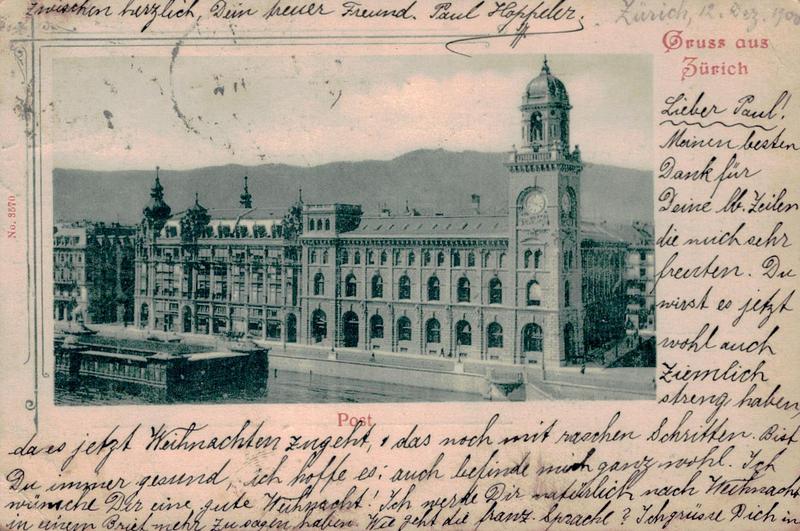 Zwischen herzlich, Dein treuer Freund. Paul Hoppeler.
Zürich, 12. Dez. 1900
Gruss aus
Zürich
No. 3570
Lieber Paul!
Meinen besten
Dank für
Deine lb. Zeilen
die mich sehr
freuten. Du
wirst es jetzt
wohl auch
ziemlich
streng haben,
Post
da es jetzt Weihnachten zugeht, & das noch mit raschen Schritten. Bist
Du immer gesund, ich hoffe es; auch befinde mich ganz wohl. Ich
wünsche Dir eine gute Weihnacht! Ich werde Dir natürlich nach Weihnacht
in einem Brief mehr zu sagen haben. Wie geht die franz. Sprache? Ich grüsse Dich in